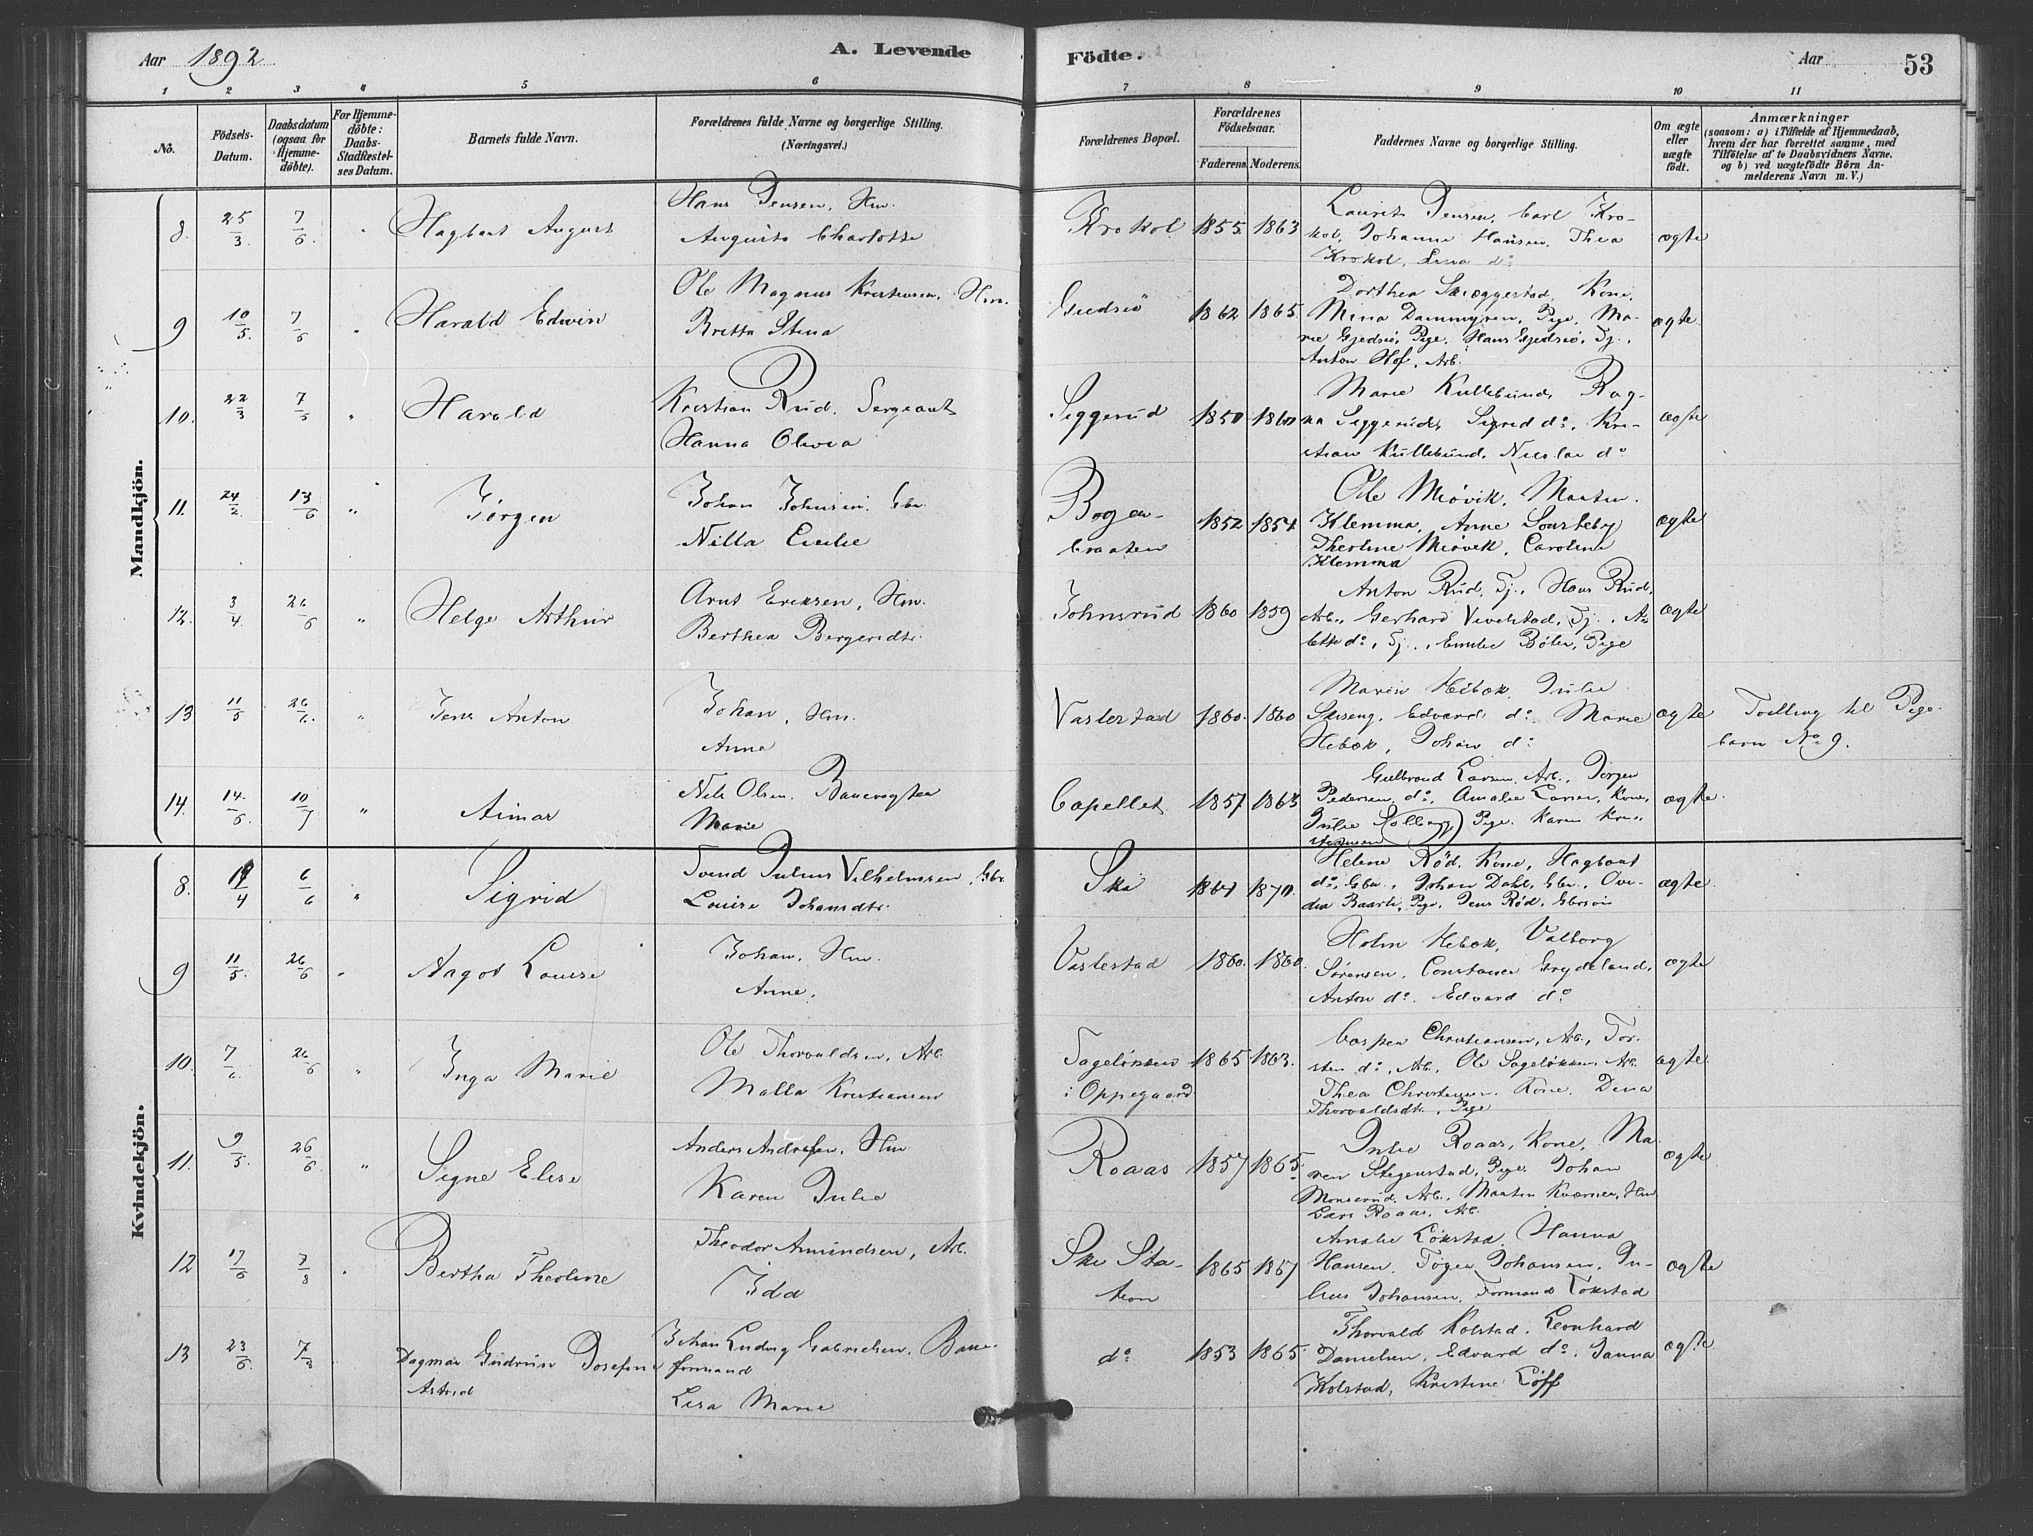 Aar 1892
A. Levende
Födte.
Aar
53
1 2 3 4 5 6 7 8 9 10 11
No.
Födsels-Datum.
Daabsdatum (ogsaa for Hjemmedöbte).
For Hjemmedöbte: Daabs-Stadfæstelses Datum.
Barnets fulde Navn.
Forældrenes fulde Navne og borgerlige Stilling. (Næringsvei.)
Forældrenes Bopæl.
Forældrenes Födselsaar.
Faderens. Moderens.
Faddernes Navne og borgerlige Stilling.
Om ægte eller uægte födt.
Anmærkninger
(saasom: a) i Tilfælde af Hjemmedaab, hvem der har forrettet samme, med Tilföielse af to Daabsvidners Navne. og b) ved uægtefödte Börn Anmelderens Navn m. V.)
Mandkjön.
8. 25/3 7/6 " August
Hans Jensen, Hm.
Augusta Charlotte
Krokol 1855 1863
Laurits Jensen, Carl Kro-
kol, Johanne Hansen, Thea
Krokol, do
ægte
9 10/5 7/6 " Harald Edwin
Ole Magnus Kristiansen, Hm.
Britta Stina
1862 1865
Dorthea Skreggestad, Kone,
Mina Dammyren, Pige, Ma-
rie Gjedsiö, Pige, Hans Gjedsiö, Tj.,
Anton Hof, Arb.
ægte
10. 22/3 7/6 " Harald
Kristian Rud, Sergeant
Hanna Olivia
Siggerud 1850 1860
Marie Kullebund, Rag-
na Siggerud, Sigrid do, Kri-
stian Kullebund, Nicolai do
ægte
11. 24/2 13/6 " Jørgen
Johan Johnsen, Gbr.
Nilla Cecilie
Bogen-
braaten
1852 1854
Ole Miövik, Martin
Klemma, Anne
Theoline Miövik, Caroline
Klemma
ægte
12. 3/4 26/6 " Helge Arthur
Arnt Eriksen, Hm.
Berthea
Johnsrud 1860 1859
Anton Rud, Tj., Hans Rud,
Arb., Gerhard Vevelstad, Tj.,
do, Tj., Emilie Bøler, Pige
ægte
13 11/5 26/6. " Jens Anton
Johan, Hm.
Anna
Vaslestad 1860. 1860
Maren Hebæk, Julie
Edvard do Marie
Hebæk, Johan do
ægte
Tvilling til Pige-
barn No 9.
14. 14/6 10/7 " Aimar
Nils Olsen, Banevogter
Marie
Capellet 1857 1863
Gulbrand Larsen, Arb., Jörgen
Pedersen, do, Amalie Larsen, Kone,
Julie Solberg, Pige, Karen Kri-
stensen
ægte
Kvindekjön.
8. /4 6/6 " Sigrid
Svend Julius Vilhelmsen, Gbr.
Louise Johansdtr.
Ski 1864 1870
Helene Rød, Kone, Hagbart
do, Gbr., Johan Dahl, Gbr.,
Pige, Jens Rød, Gbrsön
ægte
9 11/5. 26/6 " Aagot Louise
Johan, Hm.
Anne.
Vaslestad 1860. 1860.
Holm Hebæk, Valborg
Sørensen, Constance Grydeland,
Anton do. Edvard do
ægte
10. 7/6 26/6 " Inga Marie
Ole Thorvaldsen, Arb.
Malla Kristiansen
Sageløkken
i Oppegaard
1865 1863.
Casper Christiansen, Arb., Tor-
sten do, Arb., Ole Sageløkken, Arb.
Thea Christensen, Kone, Dina
Thorvaldsdtr., Pige
ægte
11. 9/5 26/6 " Signe Elise
Anders Andresen, Hm
Karen Julie
Roaas 1857 1865
Julie Roaas, Kone, Ma-
ren Stegenstad, Pige, Johan
Monserud, Arb., Martin Kværner, Hm
Lars Roaas, Arb.
ægte
12 17/6 7/8 " Bertha Theoline
Theodor Amundsen, Arb.
Ida
Ski Sta-
tion
1865 1867
Amalie Løkstad, Hanna
Hansen, Johansen, Ju-
lius Johansen, Formand
ægte
13 23/6. 7/8 Dagmar Gudrun Josefine
Astrid
Johan Ludvig Gabrielsen, Bane-
formand
Lisa Marie
do 1853 1865
Thorvald Kolstad, Leonhard
Danielsen, Edvard do, Janna
Kolstad, Kristine Löff
ægte